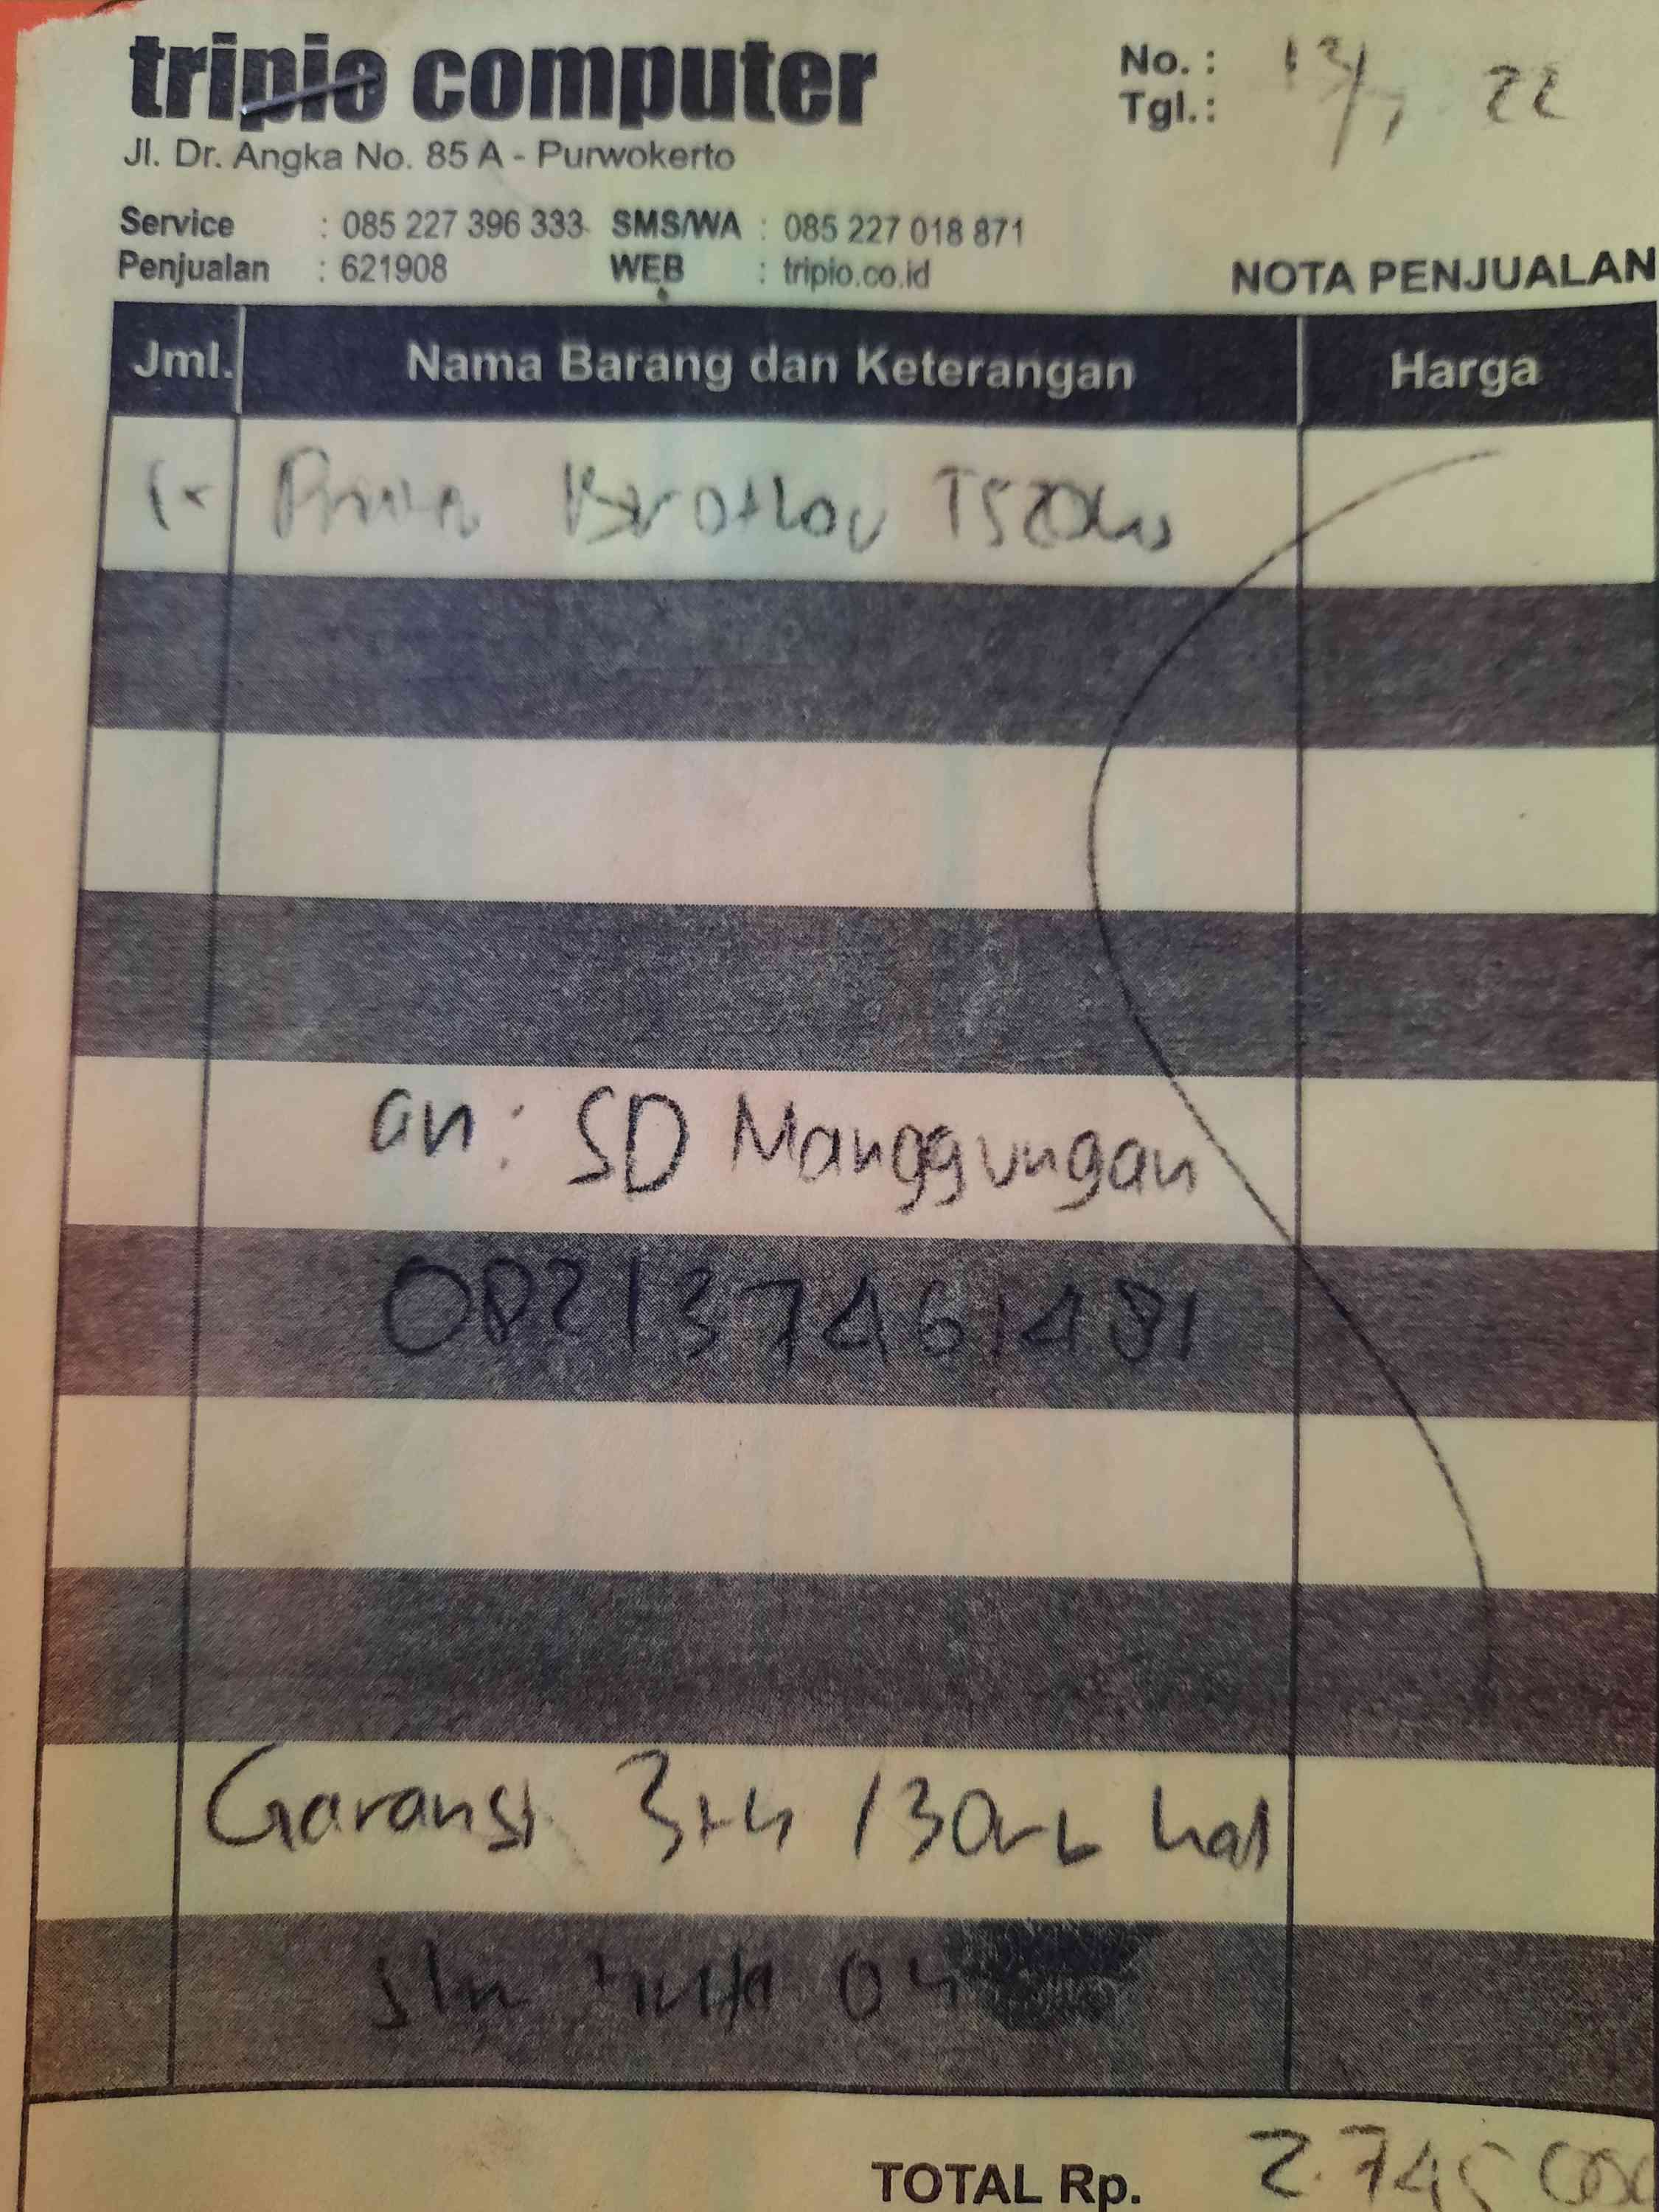 tripio computer
Jl. Dr. Angka No. 85 A - Purwokerto
No. :
Tgl. : 13/7 22
Service : 085 227 396 333 SMS/WA : 085 227 018 871
Penjualan : 621908 WEB : tripio.co.id
NOTA PENJUALAN
Jml. Nama Barang dan Keterangan Harga
an : SD Manggungan
082137461481
Garansi 3th / 30rb hal
TOTAL Rp. 2.745